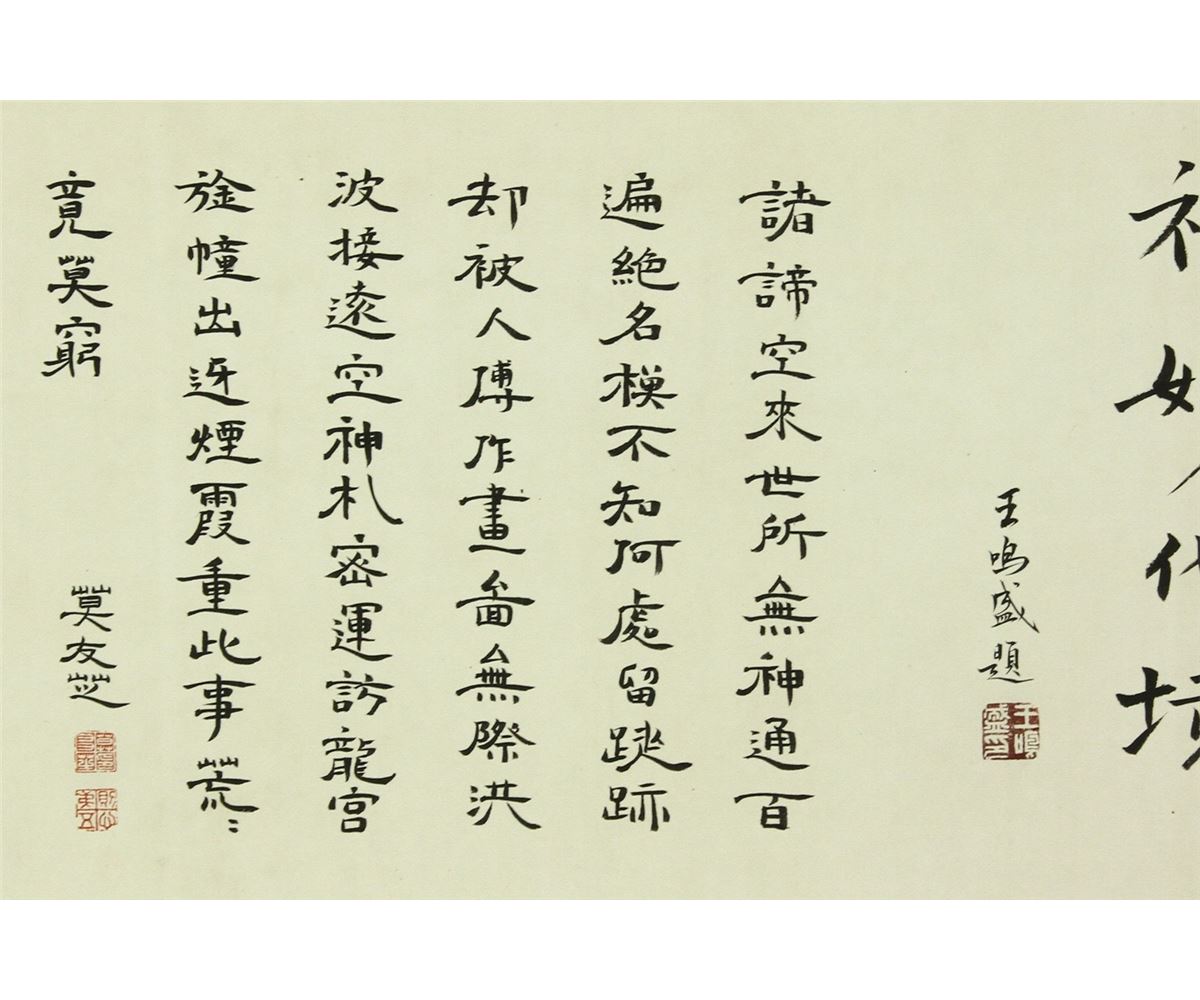 神女化境
王鳴盛題
諸諦空來世所無神通百
遍絕名模不知何處留蹤跡
却被人傳作畫圖無際洪
波接遠空神札密運訪龍宮
旌幢出迓煙霞重此事荒〻
竟莫窮
莫友芝